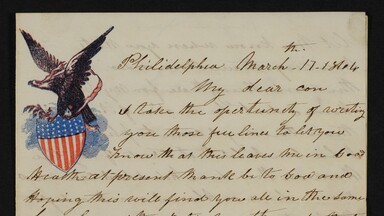 th
Philidelphia March. 17. 1864
My dear con
I take the opertunity of writing
you those few lines to let you
know that at this leaves me in Good
Health at present thank be to God and
Hoping this will find you all in the same